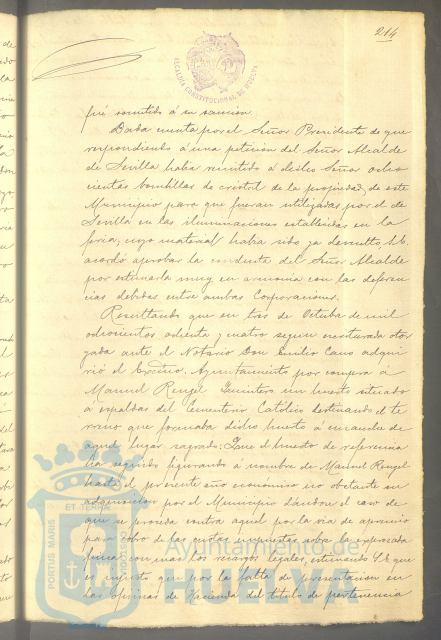 214
ALCALDIA CONSTITUCIONAL DE HUELVA
fué sometido á su sancion.
Dada cuenta por el Señor Presidente de que
respondiendo á una peticion del Señor Alcalde
de Sevilla habia remitido á dicho Señor ocho
cientas bombillas de cristal de la propiedad de este
Municipio para que fueran utilizadas por el de
Sevilla en las iluminaciones establecidas en la
feria, cuyo material habia sido ya devuelto, S.E.
acordó aprobar la conducta del Señor Alcalde
por estimarla muy en armonia con las deferen
cias debidas entre ambas Corporaciones.
Resultando que en tres de Octubre de mil
ochocientos ochenta y cuatro segun escritura otor
gada ante el Notario Don Emilio Cano adqui
rió el Excmo. Ayuntamiento por compra á
Manuel Rengel Quintero un huerto situado
á espaldas del Cementerio Católico destinando el te
rreno que formaba dicho huerto á ensanche de
aquel lugar sagrado: Que el huerto de referencia
ha seguido figurando á nombre de Manuel Rengel
hasta el presente año económico no obstante su
adquisicion por el Municipio dándose el caso de
que se proceda contra aquel por la via de apremio
para cobro de las cuotas impuestas sobre la expresada
finca con mas los recargos legales, estimando S.E. que
es injusto que por la falta de presentacion en
las oficinas de Hacienda del titulo de pertenencia
PORTUS MARIS
ET TERRÆ
CUSTODIA
Ayuntamiento de
HUELVA